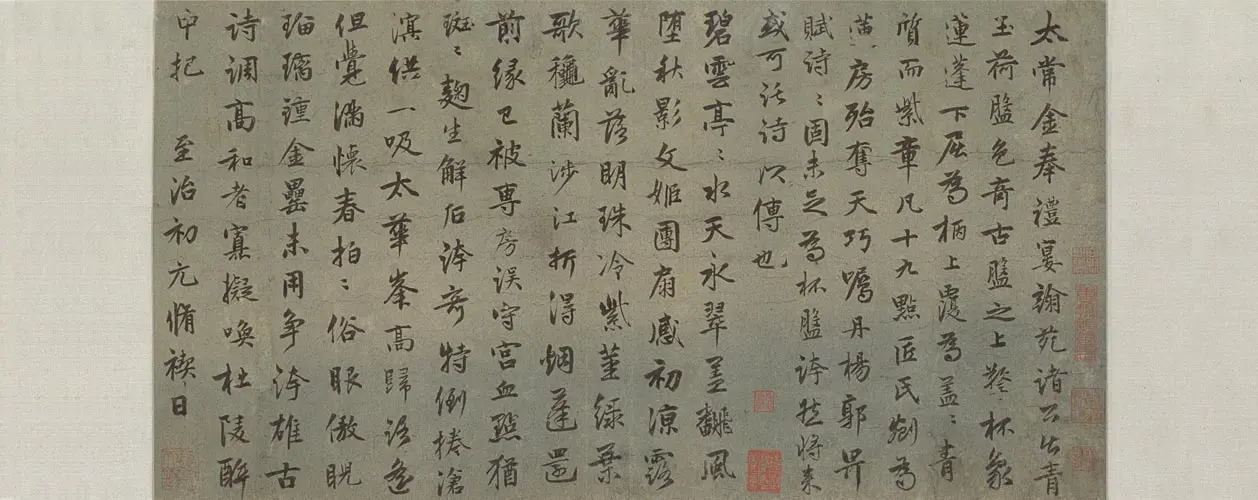 太常金奉禮宴翰苑諸公出青
玉荷盤色奇古盤之上琢杯象
蓮蓬下屈為柄上覆為盖〻青
質而紫章凡十九點匠氏剜為
蓮房殆奪天巧囑丹楊郭畀
賦詩〻固未足為杯盤誇然將來
或可託詩以傳也
碧雲亭〻水天永翠盖飜風
墮秋影文姬團扇感初凉露
華亂落明珠冷紫莖綠葉
歌穠蘭涉江折得烟蓬還
前緣已被專房誤守宮血點猶
斑〻麴生解后誇奇特倒捲滄
溟供一吸太華峯高歸路遙
但覺滿懷春拍〻俗眼傲睨
瑙璃鍾金罍未用爭誇雄古
詩調高和者寡擬喚杜陵酔
中把　至治初元脩禊日